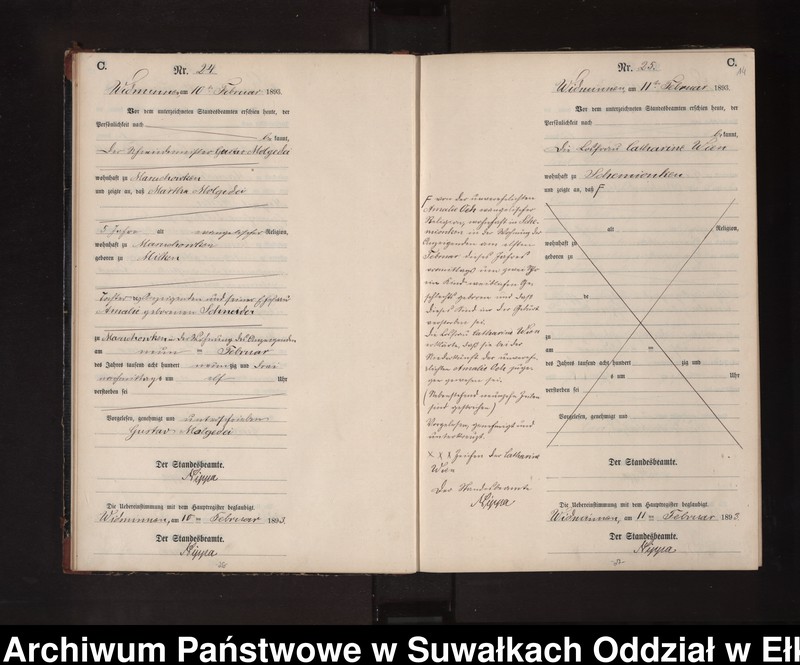 C.
Nr. 24
Widminnen, am 10ten Februar 1893.
Vor dem unterzeichneten Standesbeamten erschien heute, der
Persönlichkeit nach
kannt,
Der Schneidermeister Gustav Molgedei
wohnhaft zu Marschonken
und zeigte an, daß Martha Molgedei
5 Jahre alt evangelischer Religion,
wohnhaft zu Marschonken
geboren zu Milken
Tochter des Anzeigenden und seiner Ehefrau
Amalie geborenen Schneider
zu Marschonken in der Wohnung des Anzeigenden
am neun ten Februar
des Jahres tausend acht hundert neunzig und drei
nachmittags um elf Uhr
verstorben sei
Vorgelesen, genehmigt und unterschrieben
Gustav Molgedei
Der Standesbeamte.
Nippa
Die Uebereinstimmung mit dem Hauptregister beglaubigt.
Widminnen, am 10ten Februar 1893.
Der Standesbeamte.
Nippa
C.
14
Nr. 25.
Widminnen am 11ten Februar 1893.
Vor dem unterzeichneten Standesbeamten erschien heute, der
Persönlichkeit nach
kannt,
Die Losfrau Catharine Wien
wohnhaft zu Schemionken
und zeigte an, daß F
alt Religion,
wohnhaft zu
geboren zu
de
zu
am ten
des Jahres tausend acht hundert zig und
s um Uhr
verstorben sei
Vorgelesen, genehmigt und
F von der unverehelichten
Amalie evangelischer
Religion, wohnhaft in Sche-
mionken in der Wohnung der
Anzeigenden am elften
Februar dieses Jahres
vormittags um zwei Uhr
ein Kind weiblichen Ge-
schlechts geboren und daß
dieses Kind in der Geburt
verstorben sei.
Die Losfrau Catharine Wien
erklärte, daß sie bei der
Niederkunft der unverehe-
lichten Amalie zuge-
gen gewesen sei.
(Nebenstehend Zeilen
sind gestrichen)
Vorgelesen, genehmigt und
unterkreuzt.
x x x Zeichen der Catharine
Wien
Der Standesbeamte
Nippa
Der Standesbeamte.
Die Uebereinstimmung mit dem Hauptregister beglaubigt.
Widminnen, am 11ten Februar 1893.
Der Standesbeamte.
Nippa
Archiwum Państwowe w Suwałkach Oddział w Ełk